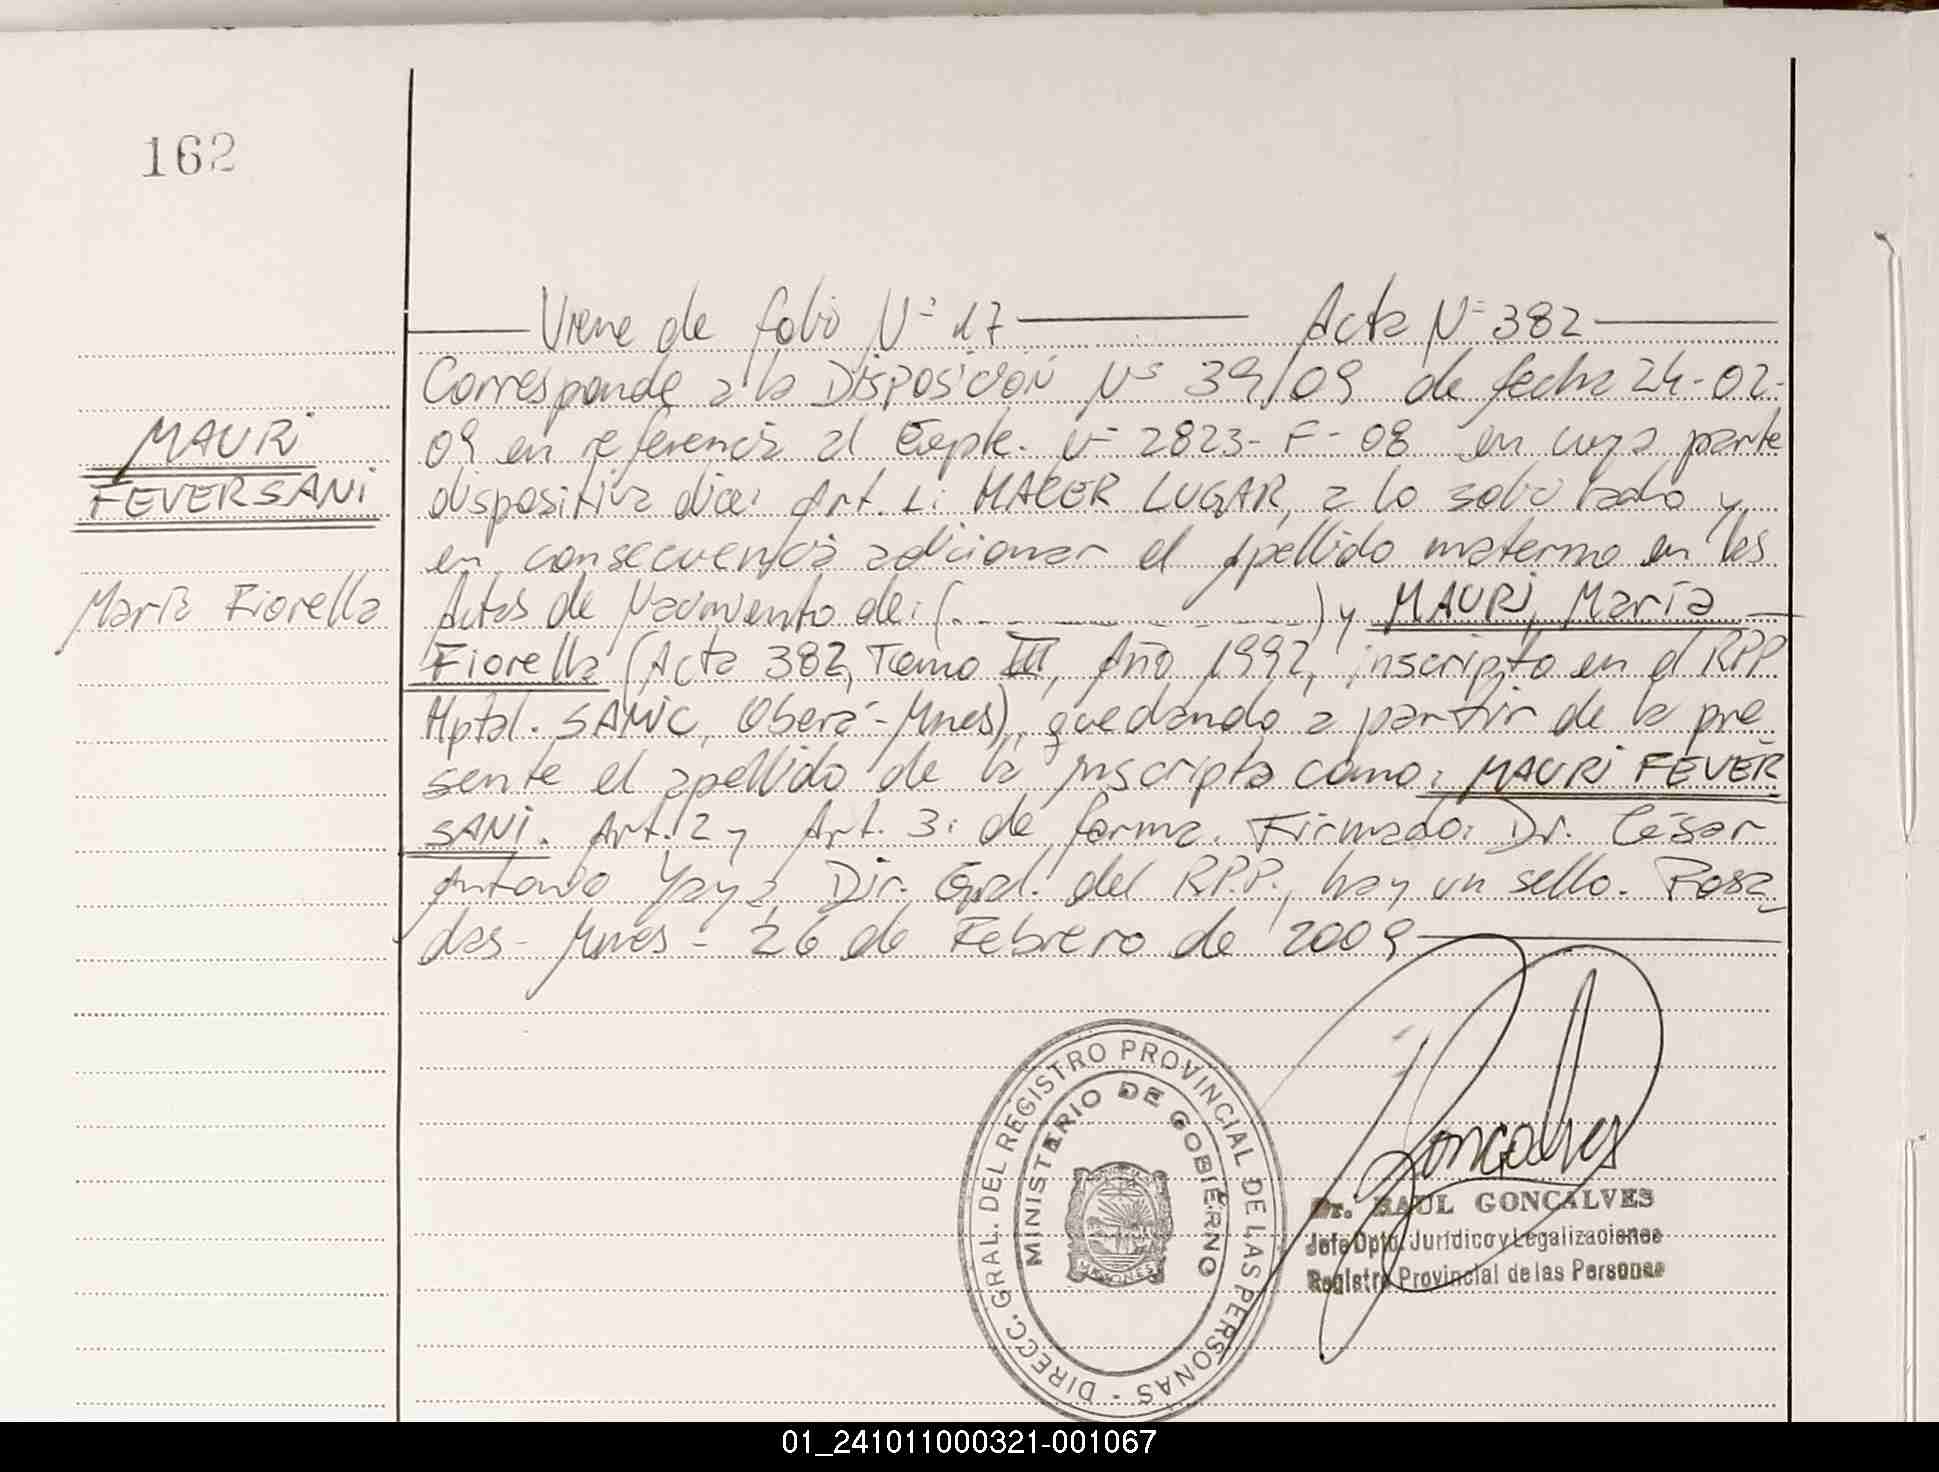 162
Viene de folio Nº 17 Acta Nº 382
Corresponde a la DISPOSICIÓN Nº 39/09 de fecha 24-02-
09 en referencia al Expte. Nº 2823-F-08 en cuya parte
dispositiva dice: Art. 1: HACER LUGAR, a lo solicitado y,
en consecuencia adicionar el apellido materno en las
Actas de Nacimiento de: (. _ _ _ _ _ _ _) y MAURI, María
Fiorella (Acta 382, Tomo III, Año 1992, inscripto en el RPP.
Hptal. SAMIC, Oberá-Mnes), quedando a partir de la pre
sente el apellido de la inscripta como: MAURI FEVER
SANI. Art. 2 y Art. 3: de forma. Firmado: Dr. César
Antonio Yaya, Dir. Gral. del R.P.P., hay un sello. Posa_
das - Mnes - 26 de Febrero de 2009
MAURI
FEVERSANI
María Fiorella
DIRECC. GRAL. DEL REGISTRO PROVINCIAL DE LAS PERSONAS -
MINISTERIO DE GOBIERNO
MISIONES
Goncalves
Dr. RAUL GONCALVES
Jefe Dpto. Jurídico y Legalizaciones
Registro Provincial de las Personas
01_241011000321-001067